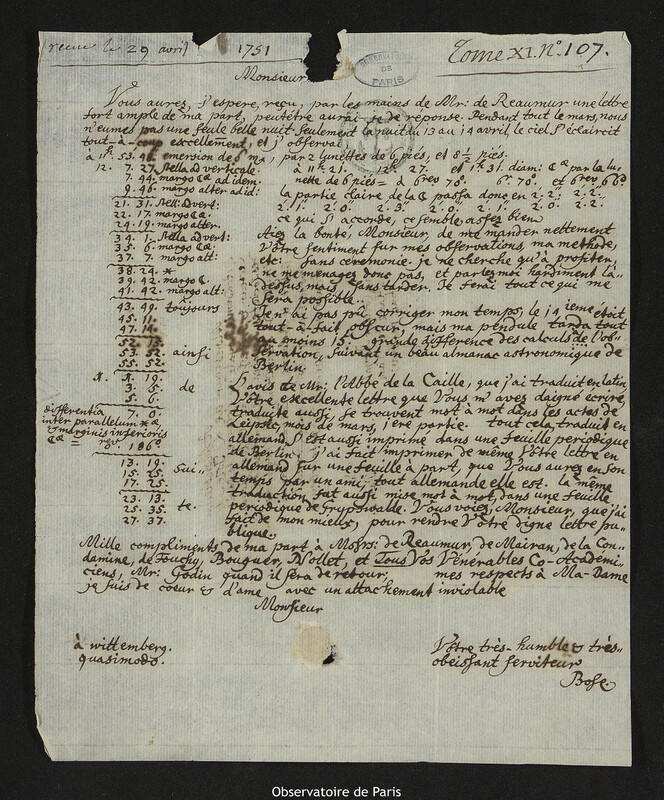 recue le 29 avril 1751 Tome XI. N°. 107.
OBSERVATOIRE DE PARIS
Monsieur
Vous aures, j'espere, reçu, par les mains de Mr: de Reaumur une lettre
fort ample de ma part, peutétre aurai-je de reponse. Pendant tout le mars, nous
n'eumes pas une seule belle nuit. Seulement la nuit du 13 au 14 avril le ciel s'éclaircit
tout-à-coup excellement, et j'observai
à 11h. 53. emersion de ma, par 2 lunettes de 6 piés, et 8½ piés.
12. 7. 27. stella ad verticale. à 11h 21. 12h 27. et 1h 31. diam: par la lu,
7. 44. margo ad idem. nette de 6 piés = 6 rev 70. 6. 70. et 6 rev
9. 46. margo alter ad id: la partie claire de la passa donc en 2'. 2". 2. 2.
21. 31. stell: advert: 2. 1. 2. 0. 2. 3. 2. 0. 2. 1. 2. 0. 2. 2.
22. 17. margo ce qui s'accorde, ce semble assés bien.
24. 19. margo alter Aiez la bonté, Monsieur, de me mander nettement
34. 1. stella ad vert: Vôtre sentiment sur mes observations, ma methode,
35. 6. margo etc. sans ceremonie. je ne cherche qu'à profiter,
37. 7. margo alt: ne me menagez donc pas, et parlez moi hardiment là-
38. 24. * dessus, mais sans tarder. Je ferai tout ce qui me
39. 42. margo sera possible.
41. 42. margo alt: Je n'ai pas pû corriger mon temps, le 14ieme était
43. 49. toûjours tout-à-fait obscur, mais ma pendule tarda tout
45. 11. au moins 15. grande différence des calculs de l'ob-
47. servation, suivant un beau almanac astronomique de
52. Berlin.
53. 52. ainsi
55. 52.
19. de L'avis de Mr: l'Abbé de la Caille, que j'ai traduit en latin,
3. 5. Vôtre excellente lettre que Vous m'avez daigné ecrire,
5. 6. traduite aussi, se trouvent mot à mot dans les actes de
7. 6. Leipsic, mois de mars, 1ére partie. tout cela, traduit en
differentia
inter parallelum
& marginis inferioris
allemand s'est aussi imprimé dans une feuille periodique
de Berlin. j'ai fait imprimer de même Vôtre lettre en
13. 19. allemand sur une feuille à part, que Vous aures en son
15. 25. sui,, temps par un ami. tout allemande elle est. la même
17. 25. traduction fut aussi mise mot à mot, dans une feuille
23. 13. periodique de Grypswalde. Vous voiez, Monsieur, que j'ai
25. 35. te. fait de mon mieus, pour rendre Vôtre digne lettre pu-
27. 37. blique.
Mille compliments de ma part à Msrs: de Reaumur, de Mairan, de la Con-
damine, de Fouchy, Bouguer, Nollet, et Tous Vos Vénerables Co-Academi-
ciens, Mr: Godin quand il sera de retour, mes respects à Ma-Dame
je suis de coeur & d'ame avec un attachement inviolable
Monsieur
à wittemberg. Vôtre très-humble & très-
quasimodo. obeissant serviteur
Bose.
Observatoire de Paris